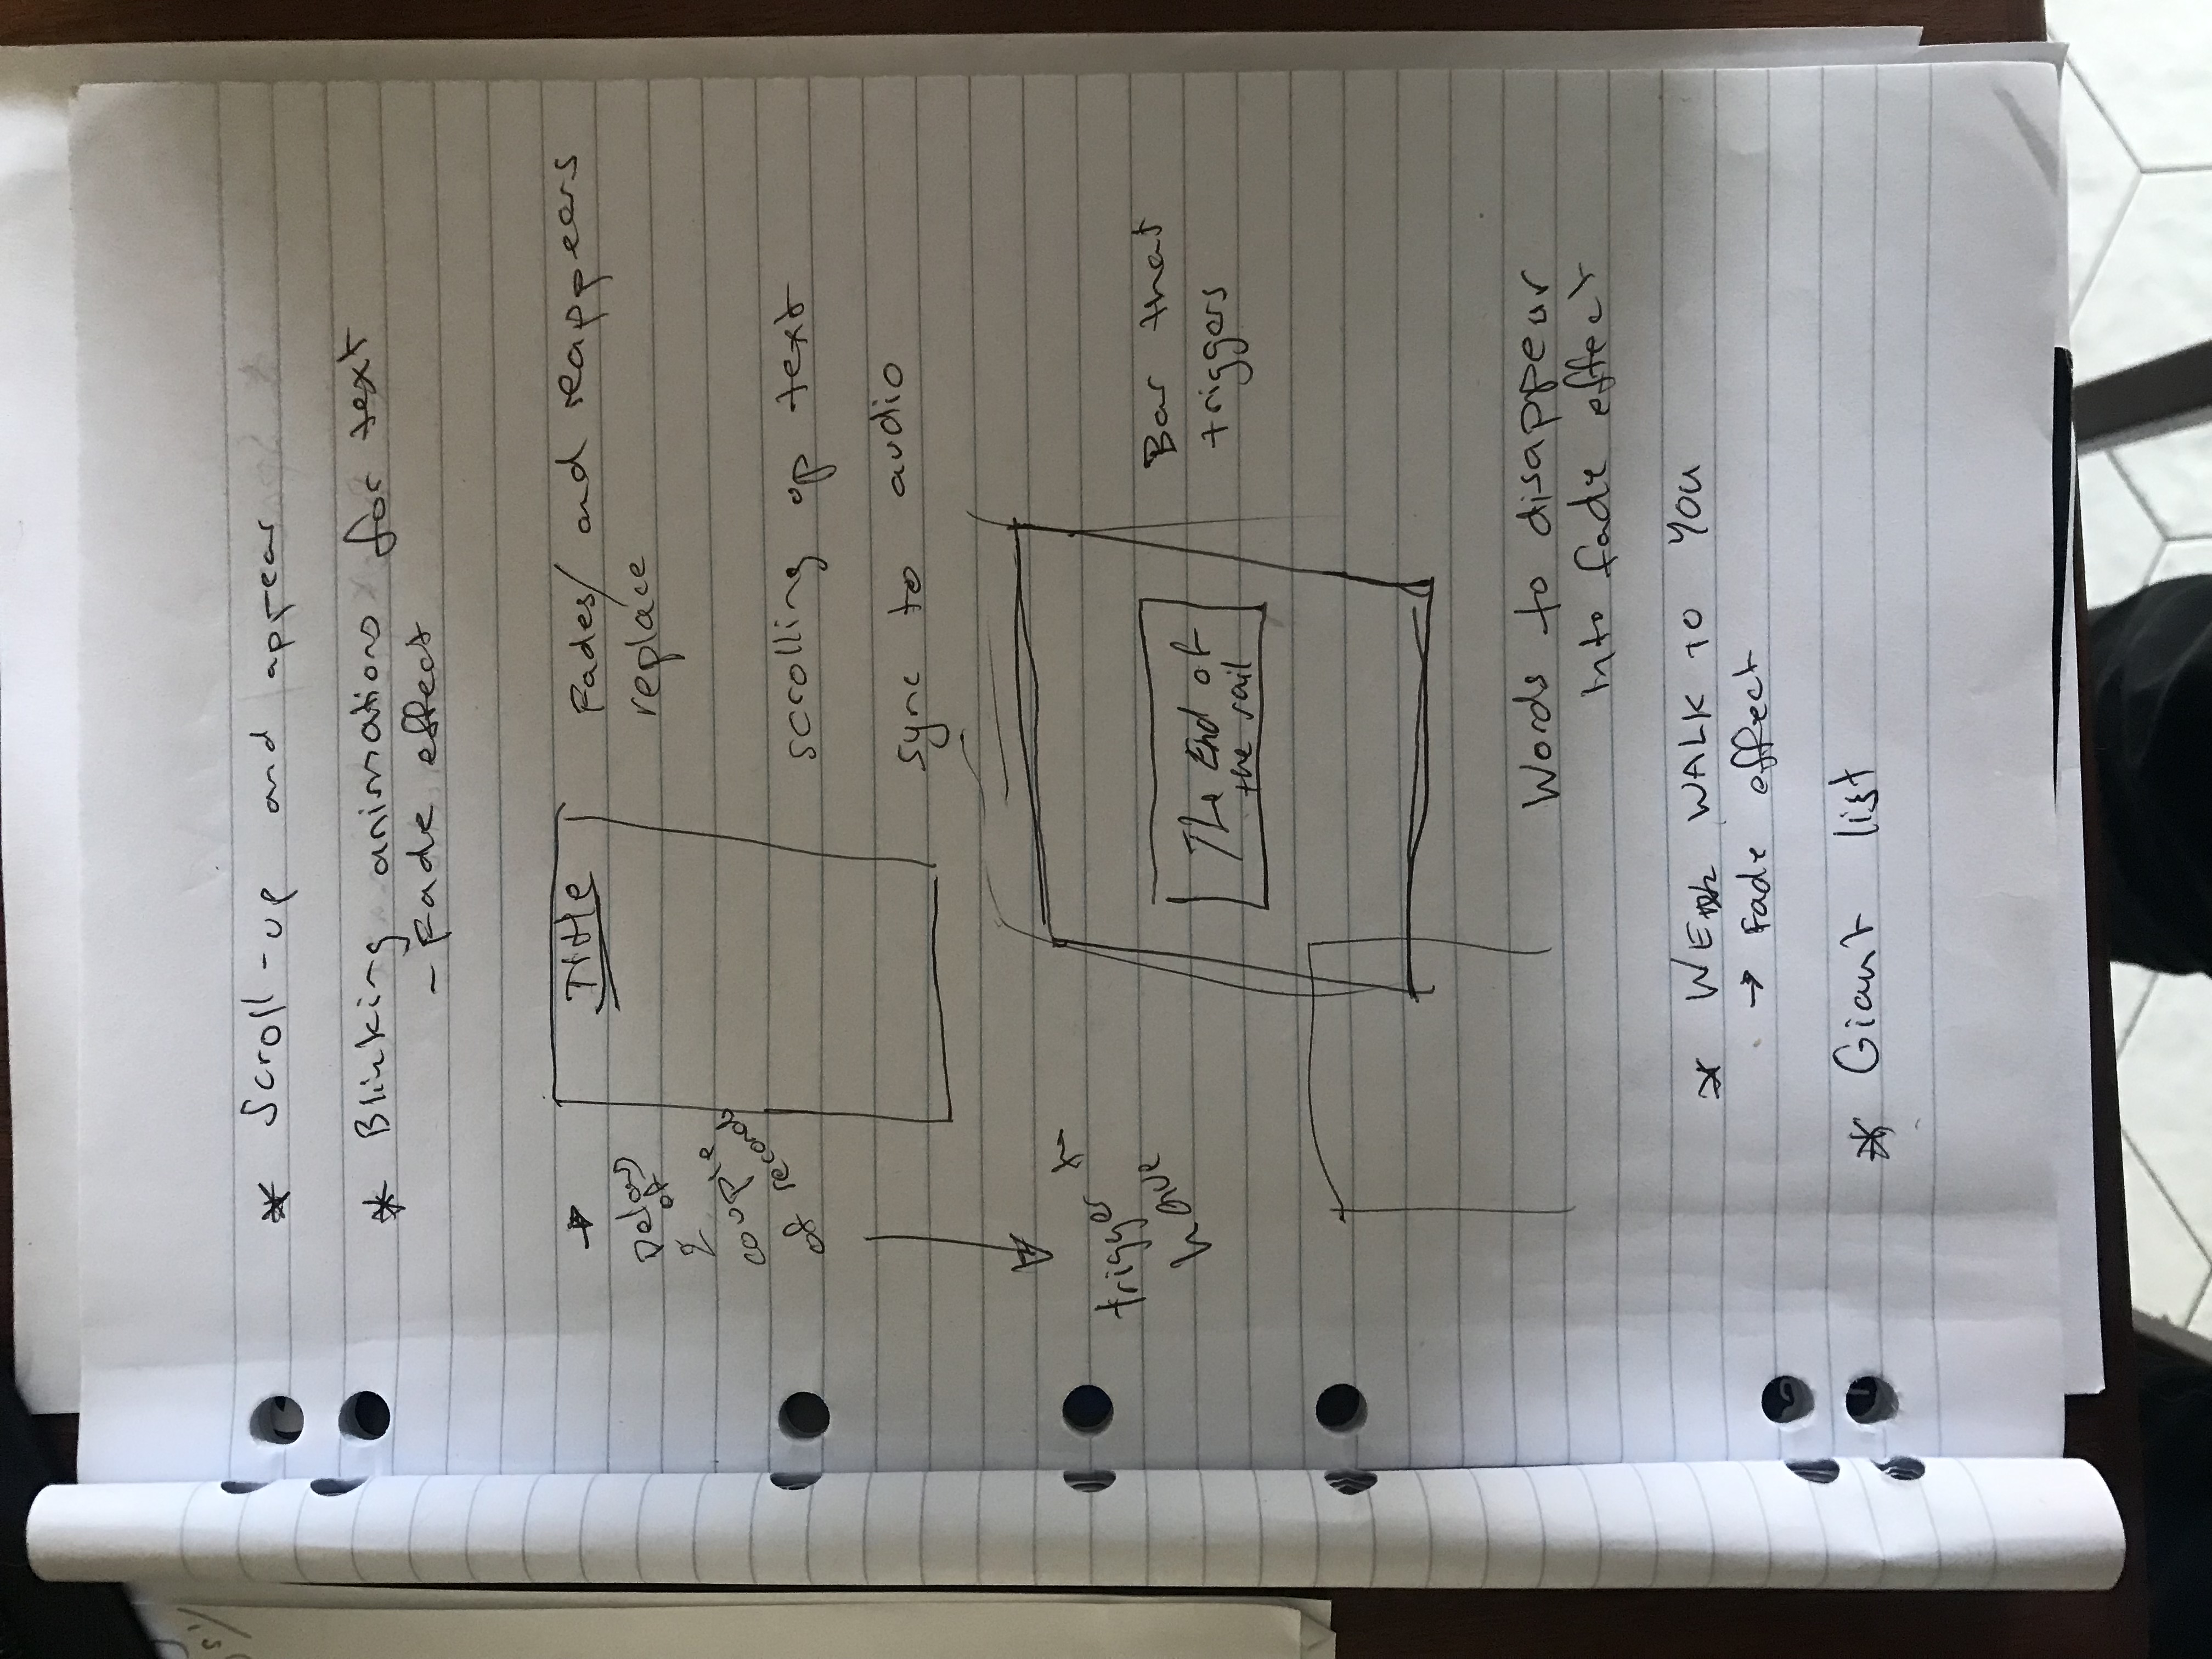 * Scroll-up and appear
* Blinking animations for text
- Fade effect
→ Title
Fades/ and reappears
replace
Delay
of
2
couple
of seconds
scrolling up text
sync to audio
trigger to
have
The End of
the rail
Bar that
triggers
Words to disappear
into fade effect
* WE WALK TO YOU
→ Fade effect
* Giant list